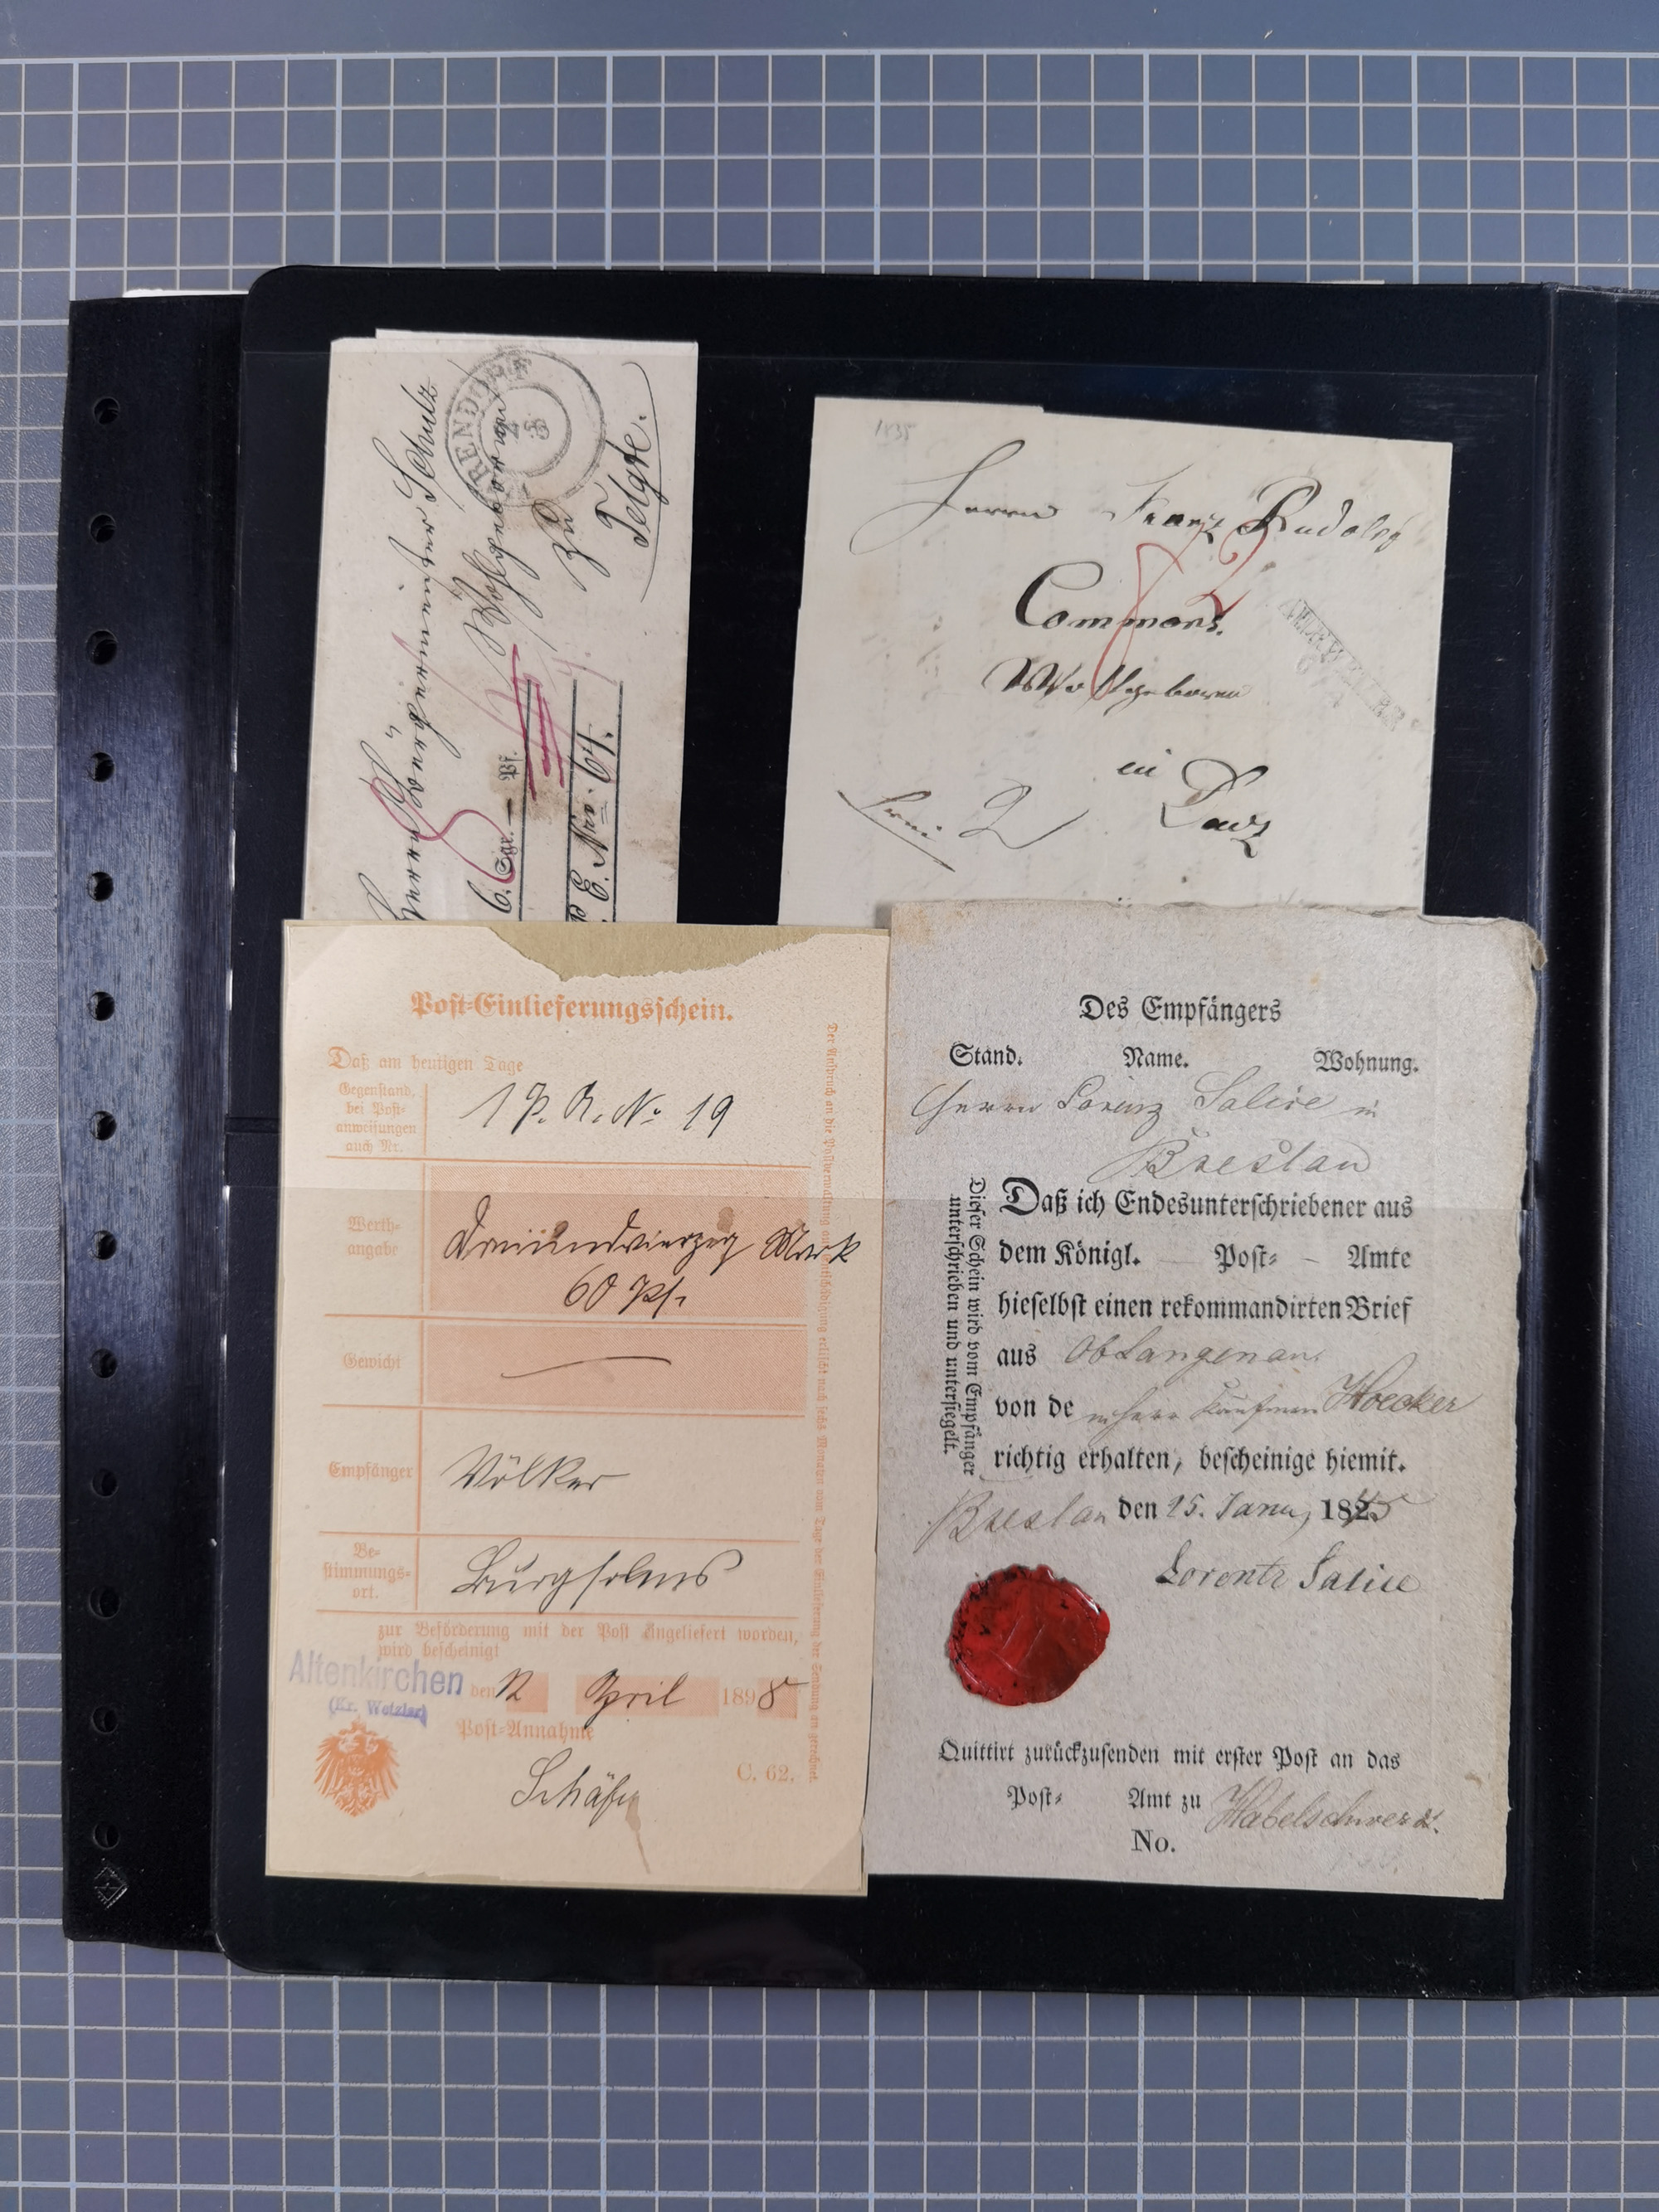 Herrn Bürgermeister Schulz
Wohlgeboren
zu
Telgte.
6. Sgr. — Pf.
E. Nro. 64.
1835
Herrn Franz Rudolph
Wohlgeboren
in
2
Post-Einlieferungsschein.
Daß am heutigen Tage
Gegenstand,
bei Post-
anweisungen
auch Nr.
1 P. A. No 19
Werth-
angabe
Dreiundvierzig Mark
60 Pf.
Gewicht
Empfänger
Völker
Be-
stimmungs-
ort.
Burgsolms
zur Beförderung mit der Post eingeliefert worden,
wird bescheinigt
Altenkirchen
(Kr. Wetzlar)
den 12 April 1898
Post-Annahme
Schäfer
C. 62.
Der Anspruch an die Postverwaltung auf Entschädigung erlischt nach sechs Monaten vom Tage der Einlieferung der Sendung an gerechnet.
Des Empfängers
Stand. Name. Wohnung.
Herrn Lorenz Salice in
Breslau
Daß ich Endesunterschriebener aus
dem Königl. Post- Amte
hieselbst einen rekommandirten Brief
aus ObLangenau
von de Kaufmann Hoecker
richtig erhalten, bescheinige hiemit.
Breslau den 25. Janu, 1825
Lorentz Salice
Dieser Schein wird vom Empfänger
unterschrieben und untersiegelt.
Quittirt zurückzusenden mit erster Post an das
Post- Amt zu Habelschwerdt.
No.